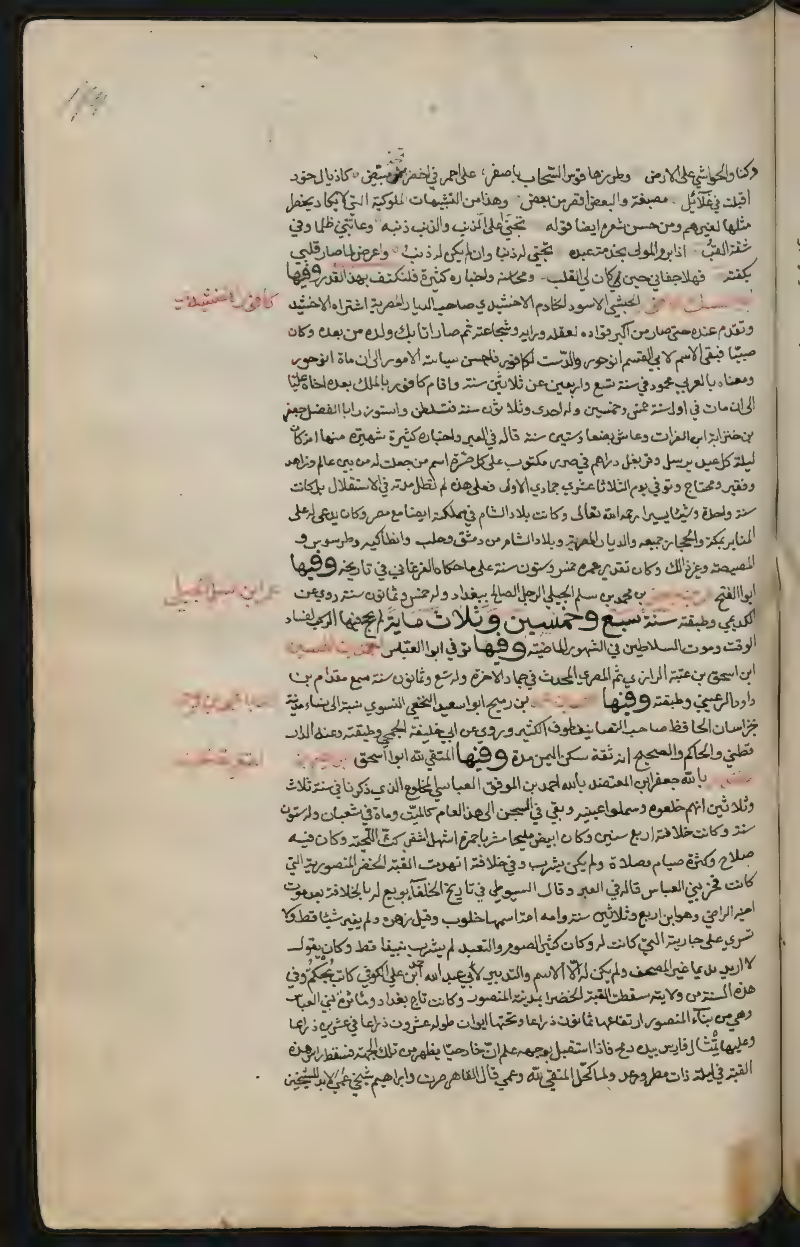 دكنا والحواشي على الارض وطرزها قوس السحاب باصفر على احمر في اخضر مبيض كاذيال خود
اقبلت في غلائل مصبغة والبعض اقصر من بعض وهذا من التشبيهات الملوكية التي لا يكاد يحضر
مثلها لغيرهم ومن حسن شعره ايضا قوله تجنى علي الذنب والذنب ذنبه وعاتبني ظلما وفي
شقه العتب اذا برم المولى بخدمة عبده تجنى له ذنبا وان لم يكن له ذنب واعرض لما صار قلبي
بكفه فهلا جفاني حين كان لي القلب ومحاسنه واخباره كثيرة فلنكتف بهذا القدر وفيها
الحبشي الاسود الخادم الاخشيدي صاحب الديار المصرية اشتراه الاخشيد
كافور الاخشيدي
وتقدم عنده حتى صار من اكبر قواده لعقله ورايه وشجاعته ثم صار اتابك ولده من بعده وكان
صبيا فبقي الاسم لابي القسم انوجور والدست لكافور فاحسن سياسة الامور الى ان مات انوجور
ومعناه بالعربي محمود في سنة تسع واربعين عن ثلاثين سنة واقام كافور بالملك بعده اخاه عليا
الى ان مات في اول سنة خمس وخمسين وله احدى وثلاثون سنة فتسلطن واستوزر ابا الفضل جعفر
بن خنزابة ابن الفرات وعاش بضعا وستين سنة قاله في العبر واخباره كثيرة شهيرة منها انه كان
ليلة كل عيد يرسل وقر بغل دراهم في صرر مكتوب على كل صرة اسم من جعلت له من بين عالم وزاهد
وفقير ومحتاج وتوفي يوم الثلاثا عشري جمادي الاولى فعلى هذا لم تطل مدته في الاستقلال بل كانت
سنة واحدة وشيئا يسيرا رحمه الله تعالى وكانت بلاد الشام في مملكته ايضا مع مصر وكان يدعى له على
المنابر بمكة والحجاز جميعه والديار المصرية وبلاد الشام من دمشق وحلب وانطاكيه وطرسوس و
المصيصة وغير ذلك وكان تقدير عمره خمس وستون سنة على ما حكاه الفرغاني في تاريخه وفيها
ابو الفتح بن محمد بن سلم الجيلي الرجل الصالح ببغداد وله خمس وثمانون سنة روى عن
الكديمي وطبقته سنة سبع وخمسين وثلاث ماية لم يحج فيها الركب لفساد
الوقت وموت السلاطين في الشهور الماضية وفيها توفي ابو العباس احمد بن الحسين
ابن اسحق بن عتبة الرازي ثم المصري المحدث في جمادى الاخرة وله تسع وثمانون سنة سمع مقدام بن
داود الرعيني وطبقته وفيها بن رميح ابو سعيد النخعي النسوي نسبة الى نسا مدينة
خراسان الحافظ صاحب التصانيف طوف الكثير وروى عن ابي خليفة الجمحي وطبقته وعنه الدار
قطني والحاكم والصحيح انه ثقة سكن اليمن مدة وفيها المتقي لله ابو اسحق
بالله جعفر ابن المعتضد بالله احمد بن الموفق العباسي المخلوع الذي ذكرنا في سنة ثلاث
وثلاثين انهم خلعوه وسملوا عينيه وبقي في السجن الى هذا العام كالميت ومات في شعبان وله ستون
سنة وكانت خلافته اربع سنين وكان ابيض مليحا مشربا حمرة اشهل اشقر كث اللحية وكان فيه
صلاح وكثرة صيام وصلاة ولم يكن يشرب وفي خلافته انهدمت القبة الخضر المنصورية التي
كانت فخر بني العباس قاله في العبر وقال السيوطي في تاريخ الخلفاء بويع له بالخلافة بعد موت
اخيه الراضي وهو ابن اربع وثلاثين سنة وامه امة اسمها خلوب وقيل زهرة ولم يغير شيئا قط ولا
تسرى على جاريته التي كانت له وكان كثير الصوم والتعبد لم يشرب نبيذا قط وكان يقول
لا اريد نديما غير المصحف ولم يكن له الا الاسم والتدبير لابي عبد الله احمد ابن علي الكوفي كاتب بجكم وفي
هذه السنة من ولايته سقطت القبة الخضرا بمدينة المنصور وكانت تاج بغداد وماثرة بني العباس
وهي من بناء المنصور ارتفاعها ثمانون ذراعا وتحتها ايوان طوله عشرون ذراعا في عشرين ذراعا
وعليها تمثال فارس بيده رمح فاذا استقبل بوجهه علم ان خارجيا يظهر من تلك الجهة فسقط راس هذه
القبة في ليلة ذات مطر ورعد ولما كحل المتقي لله وعمي قال القاهر صرت وابراهيم شيخي عمى لا بد للشيخين